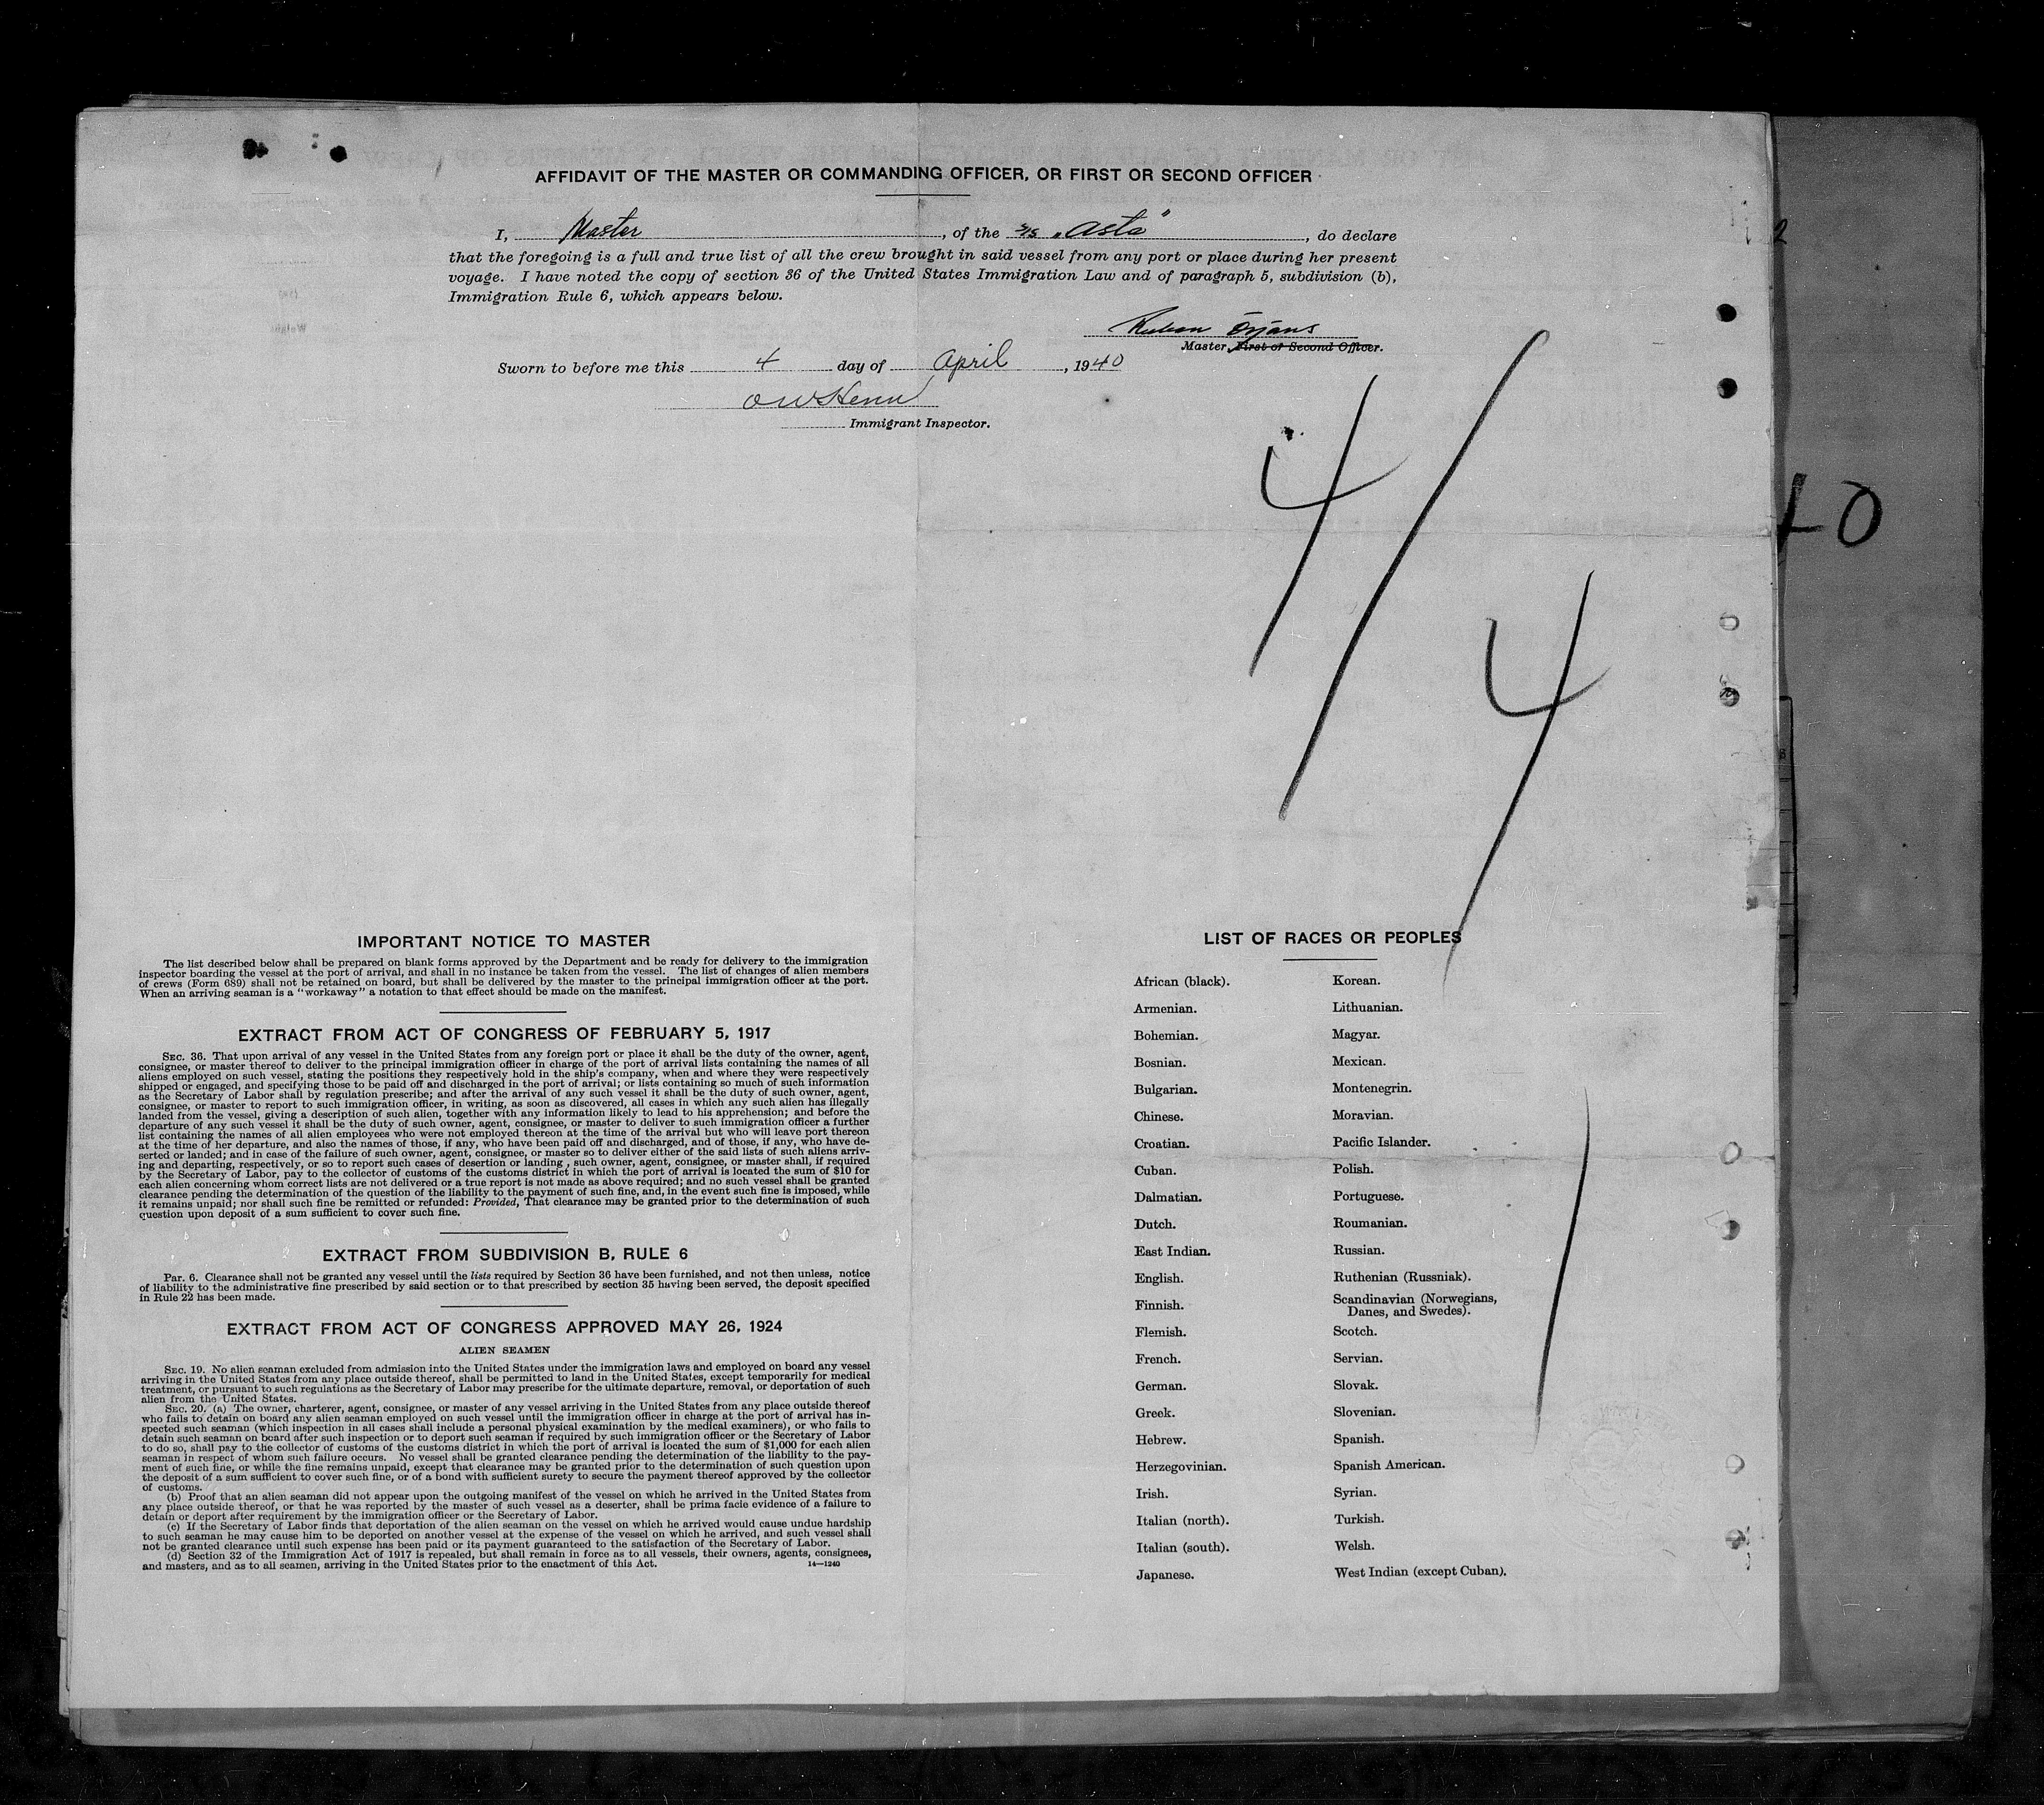 AFFIDAVIT OF THE MASTER OR COMMANDING OFFICER, OR FIRST OR SECOND OFFICER
I, Master, of the S/S „Asta", do declare
that the foregoing is a full and true list of all the crew brought in said vessel from any port or place during her present
voyage. I have noted the copy of section 36 of the United States Immigration Law and of paragraph 5, subdivision (b),
Immigration Rule 6, which appears below.
Master, First or Second Officer.
Sworn to before me this 4 day of April, 1940
Immigrant Inspector.
4/4
IMPORTANT NOTICE TO MASTER
The list described below shall be prepared on blank forms approved by the Department and be ready for delivery to the immigration
inspector boarding the vessel at the port of arrival, and shall in no instance be taken from the vessel. The list of changes of alien members
of crews (Form 689) shall not be retained on board, but shall be delivered by the master to the principal immigration officer at the port.
When an arriving seaman is a "workaway" a notation to that effect should be made on the manifest.
EXTRACT FROM ACT OF CONGRESS OF FEBRUARY 5, 1917
SEC. 36. That upon arrival of any vessel in the United States from any foreign port or place it shall be the duty of the owner, agent,
consignee, or master thereof to deliver to the principal immigration officer in charge of the port of arrival lists containing the names of all
aliens employed on such vessel, stating the positions they respectively hold in the ship's company, when and where they were respectively
shipped or engaged, and specifying those to be paid off and discharged in the port of arrival; or lists containing so much of such information
as the Secretary of Labor shall by regulation prescribe; and after the arrival of any such vessel it shall be the duty of such owner, agent,
consignee, or master to report to such immigration officer, in writing, as soon as discovered, all cases in which any such alien has illegally
landed from the vessel, giving a description of such alien, together with any information likely to lead to his apprehension; and before the
departure of any such vessel it shall be the duty of such owner, agent, consignee, or master to deliver to such immigration officer a further
list containing the names of all alien employees who were not employed thereon at the time of the arrival but who will leave port thereon
at the time of her departure, and also the names of those, if any, who have been paid off and discharged, and of those, if any, who have de-
serted or landed; and in case of the failure of such owner, agent, consignee, or master so to deliver either of the said lists of such aliens arriv-
ing and departing, respectively, or so to report such cases of desertion or landing , such owner, agent, consignee, or master shall, if required
by the Secretary of Labor, pay to the collector of customs of the customs district in which the port of arrival is located the sum of $10 for
each alien concerning whom correct lists are not delivered or a true report is not made as above required; and no such vessel shall be granted
clearance pending the determination of the question of the liability to the payment of such fine, and, in the event such fine is imposed, while
it remains unpaid; nor shall such fine be remitted or refunded: Provided, That clearance may be granted prior to the determination of such
question upon deposit of a sum sufficient to cover such fine.
EXTRACT FROM SUBDIVISION B, RULE 6
Par. 6. Clearance shall not be granted any vessel until the lists required by Section 36 have been furnished, and not then unless, notice
of liability to the administrative fine prescribed by said section or to that prescribed by section 35 having been served, the deposit specified
in Rule 22 has been made.
EXTRACT FROM ACT OF CONGRESS APPROVED MAY 26, 1924
ALIEN SEAMEN
SEC. 19. No alien seaman excluded from admission into the United States under the immigration laws and employed on board any vessel
arriving in the United States from any place outside thereof, shall be permitted to land in the United States, except temporarily for medical
treatment, or pursuant to such regulations as the Secretary of Labor may prescribe for the ultimate departure, removal, or deportation of such
alien from the United States.
SEC. 20. (a) The owner, charterer, agent, consignee, or master of any vessel arriving in the United States from any place outside thereof
who fails to detain on board any alien seaman employed on such vessel until the immigration officer in charge at the port of arrival has in-
spected such seaman (which inspection in all cases shall include a personal physical examination by the medical examiners), or who fails to
detain such seaman on board after such inspection or to deport such seaman if required by such immigration officer or the Secretary of Labor
to do so, shall pay to the collector of customs of the customs district in which the port of arrival is located the sum of $1,000 for each alien
seaman in respect of whom such failure occurs. No vessel shall be granted clearance pending the determination of the liability to the pay-
ment of such fine, or while the fine remains unpaid, except that clearance may be granted prior to the determination of such question upon
the deposit of a sum sufficient to cover such fine, or of a bond with sufficient surety to secure the payment thereof approved by the collector
of customs.
(b) Proof that an alien seaman did not appear upon the outgoing manifest of the vessel on which he arrived in the United States from
any place outside thereof, or that he was reported by the master of such vessel as a deserter, shall be prima facie evidence of a failure to
detain or deport after requirement by the immigration officer or the Secretary of Labor.
(c) If the Secretary of Labor finds that deportation of the alien seaman on the vessel on which he arrived would cause undue hardship
to such seaman he may cause him to be deported on another vessel at the expense of the vessel on which he arrived, and such vessel shall
not be granted clearance until such expense has been paid or its payment guaranteed to the satisfaction of the Secretary of Labor.
(d) Section 32 of the Immigration Act of 1917 is repealed, but shall remain in force as to all vessels, their owners, agents, consignees,
and masters, and as to all seamen, arriving in the United States prior to the enactment of this Act. 14—1240
LIST OF RACES OR PEOPLES
African (black).
Armenian.
Bohemian.
Bosnian.
Bulgarian.
Chinese.
Croatian.
Cuban.
Dalmatian.
Dutch.
East Indian.
English.
Finnish.
Flemish.
French.
German.
Greek.
Hebrew.
Herzegovinian.
Irish.
Italian (north).
Italian (south).
Japanese.
Korean.
Lithuanian.
Magyar.
Mexican.
Montenegrin.
Moravian.
Pacific Islander.
Polish.
Portuguese.
Roumanian.
Russian.
Ruthenian (Russniak).
Scandinavian (Norwegians,
Danes, and Swedes).
Scotch.
Servian.
Slovak.
Slovenian.
Spanish.
Spanish American.
Syrian.
Turkish.
Welsh.
West Indian (except Cuban).